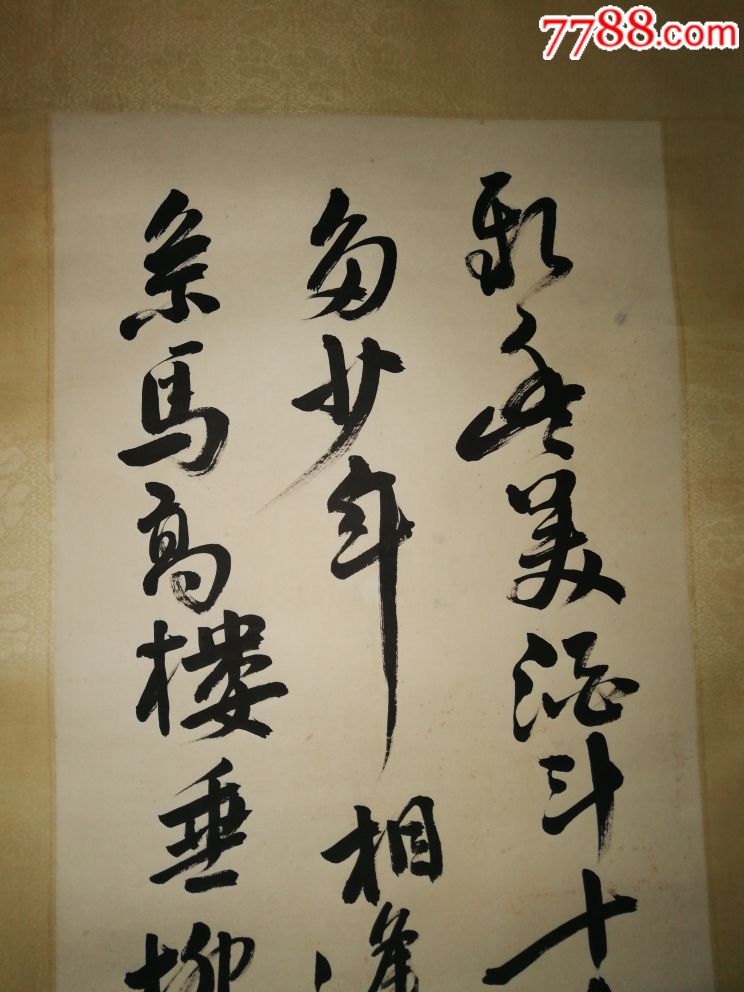 7788.com
新豐美酒斗十
多少年相逢
系馬高樓垂柳